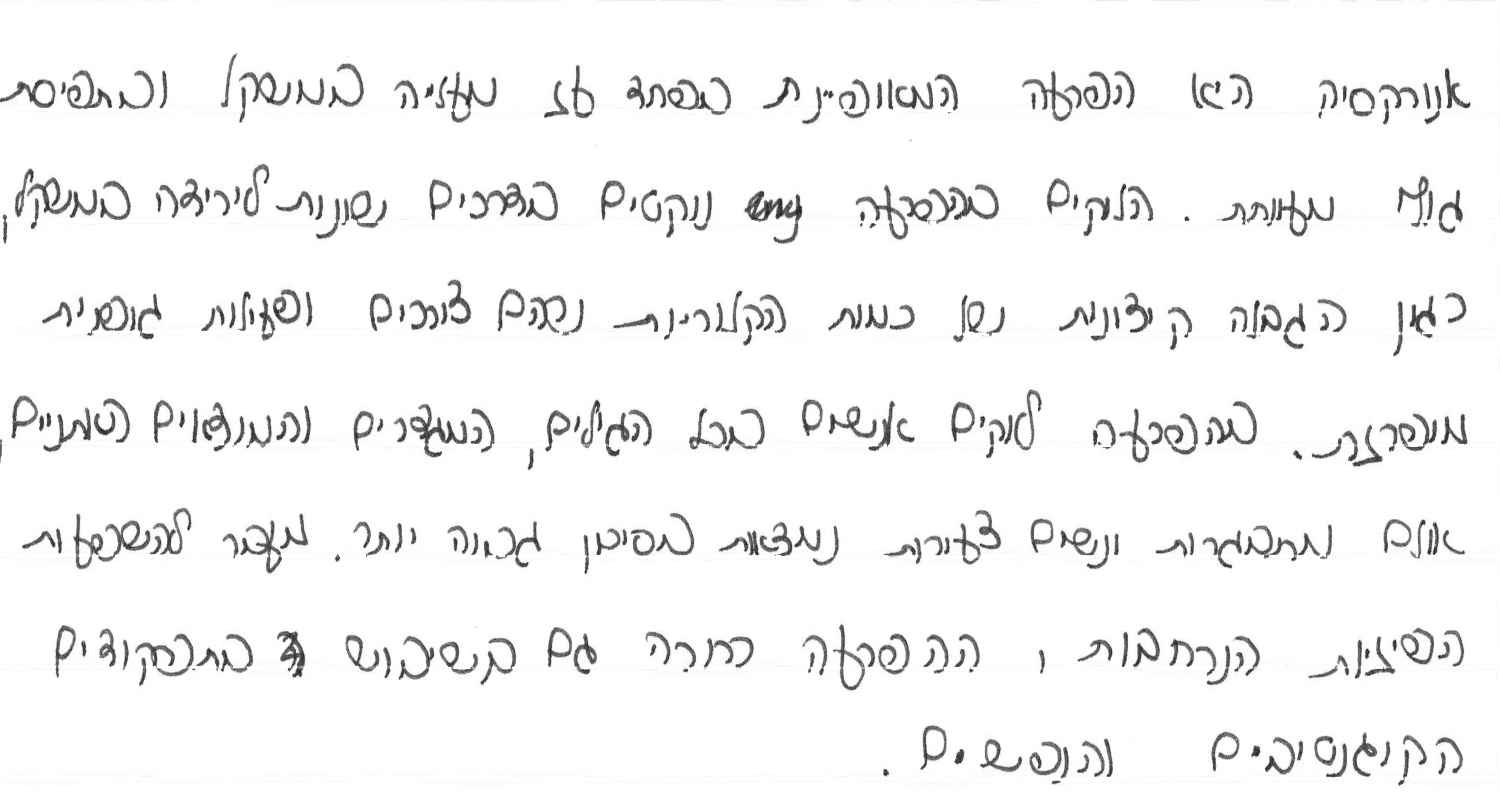 אנורקסיה היא הפרעה המאופיינת בפחד עז מעלייה במשקל ובתפיסת
גוף מעוותת. הלוקים בהפרעה נוקטים בדרכים שונות לירידה במשקל,
כגון הגבלה קיצונית של כמות הקלוריות שהם צורכים ופעילות גופנית
מופרזת. בהפרעה לוקים אנשים מכל הגילים, המגדרים והמוצאים האתניים,
אולם מתבגרות ונשים צעירות נמצאות בסיכון גבוה יותר. מעבר להשפעות
הפיזיות הנרחבות, ההפרעה כרוכה גם בשיבוש בתפקודים
הקוגנטיביים והנפשיים.